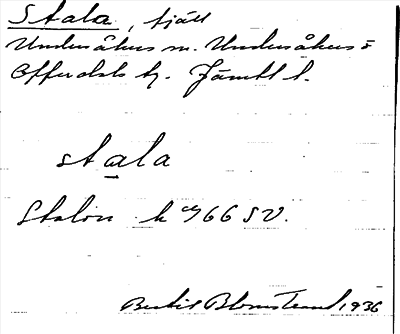 Stala, fjäll
Undersåkers sn. Undersåkers o
Offerdals tg. Jämtl l.
stala
Stalon k 66 SV.
Bertil Blomstrand 1936